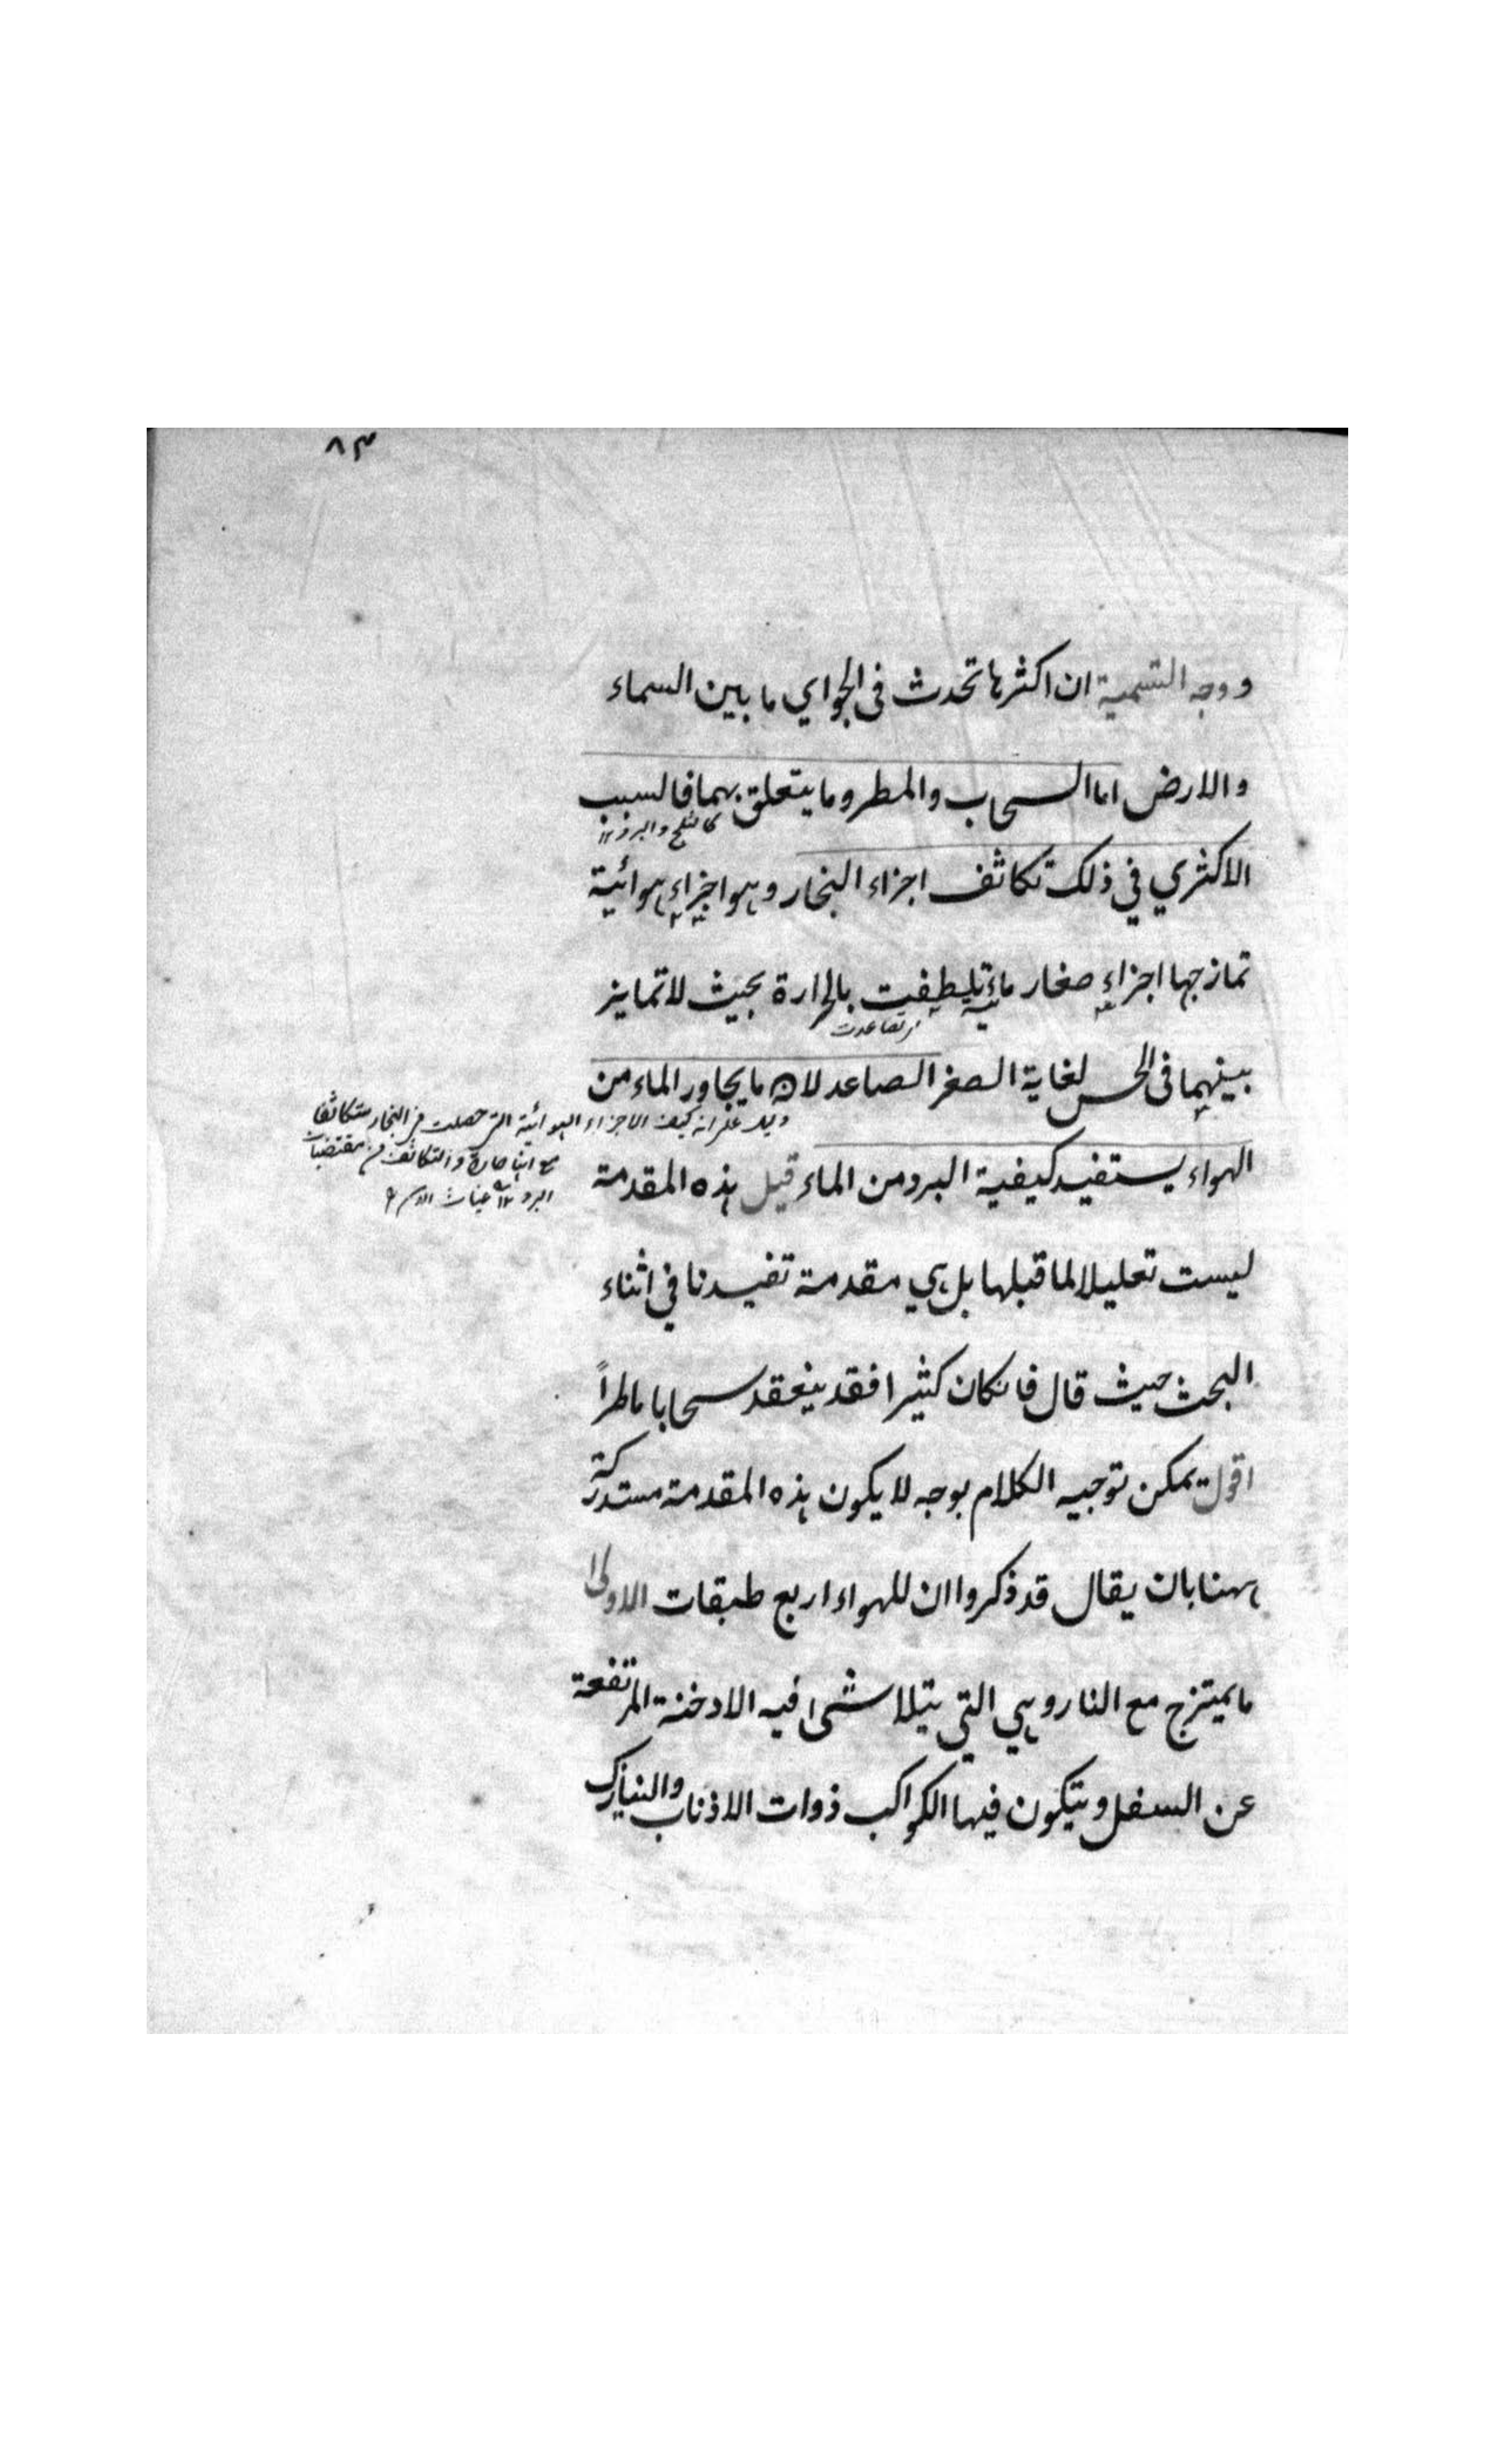 ٨٣
ووجه التسمية ان اكثرها تحدث فى الجو اي ما بين السماء
والارض اما السحاب والمطر وما يتعلق بهما فالسبب
كالثلج والبرد ١٢
الاكثري في ذلك تكاثف اجزاء البخار وهو اجزاء هوائية
تمازجها اجزاء صغار مائية تلطفت بالحرارة بحيث لا تمايز
تصاعدت
بينهما فى الحس لغاية الصغر الصاعد لان ما يجاور الماء من
كيف الاجزاء الهوائية التى حصلت من البخار متكاثفا
مع انها حارة والتكاثف من مقتضيات
البرد ١٢
الهواء يستفيد كيفية البرد من الماء قيل هذه المقدمة
ليست تعليلا لما قبلها بل هي مقدمة تفيدنا في اثناء
البحث حيث قال فانكان كثيرا فقد ينعقد سحابا ماطراً
اقول يمكن توجيه الكلام بوجه لا يكون هذه المقدمة مستدركة
ههنا بان يقال قد ذكروا ان للهواء اربع طبقات الاولى
ما يمتزج مع النار وهي التي يتلاشى فيه الادخنة المرتفعة
عن السفل ويتكون فيها الكواكب ذوات الاذناب والنيازك